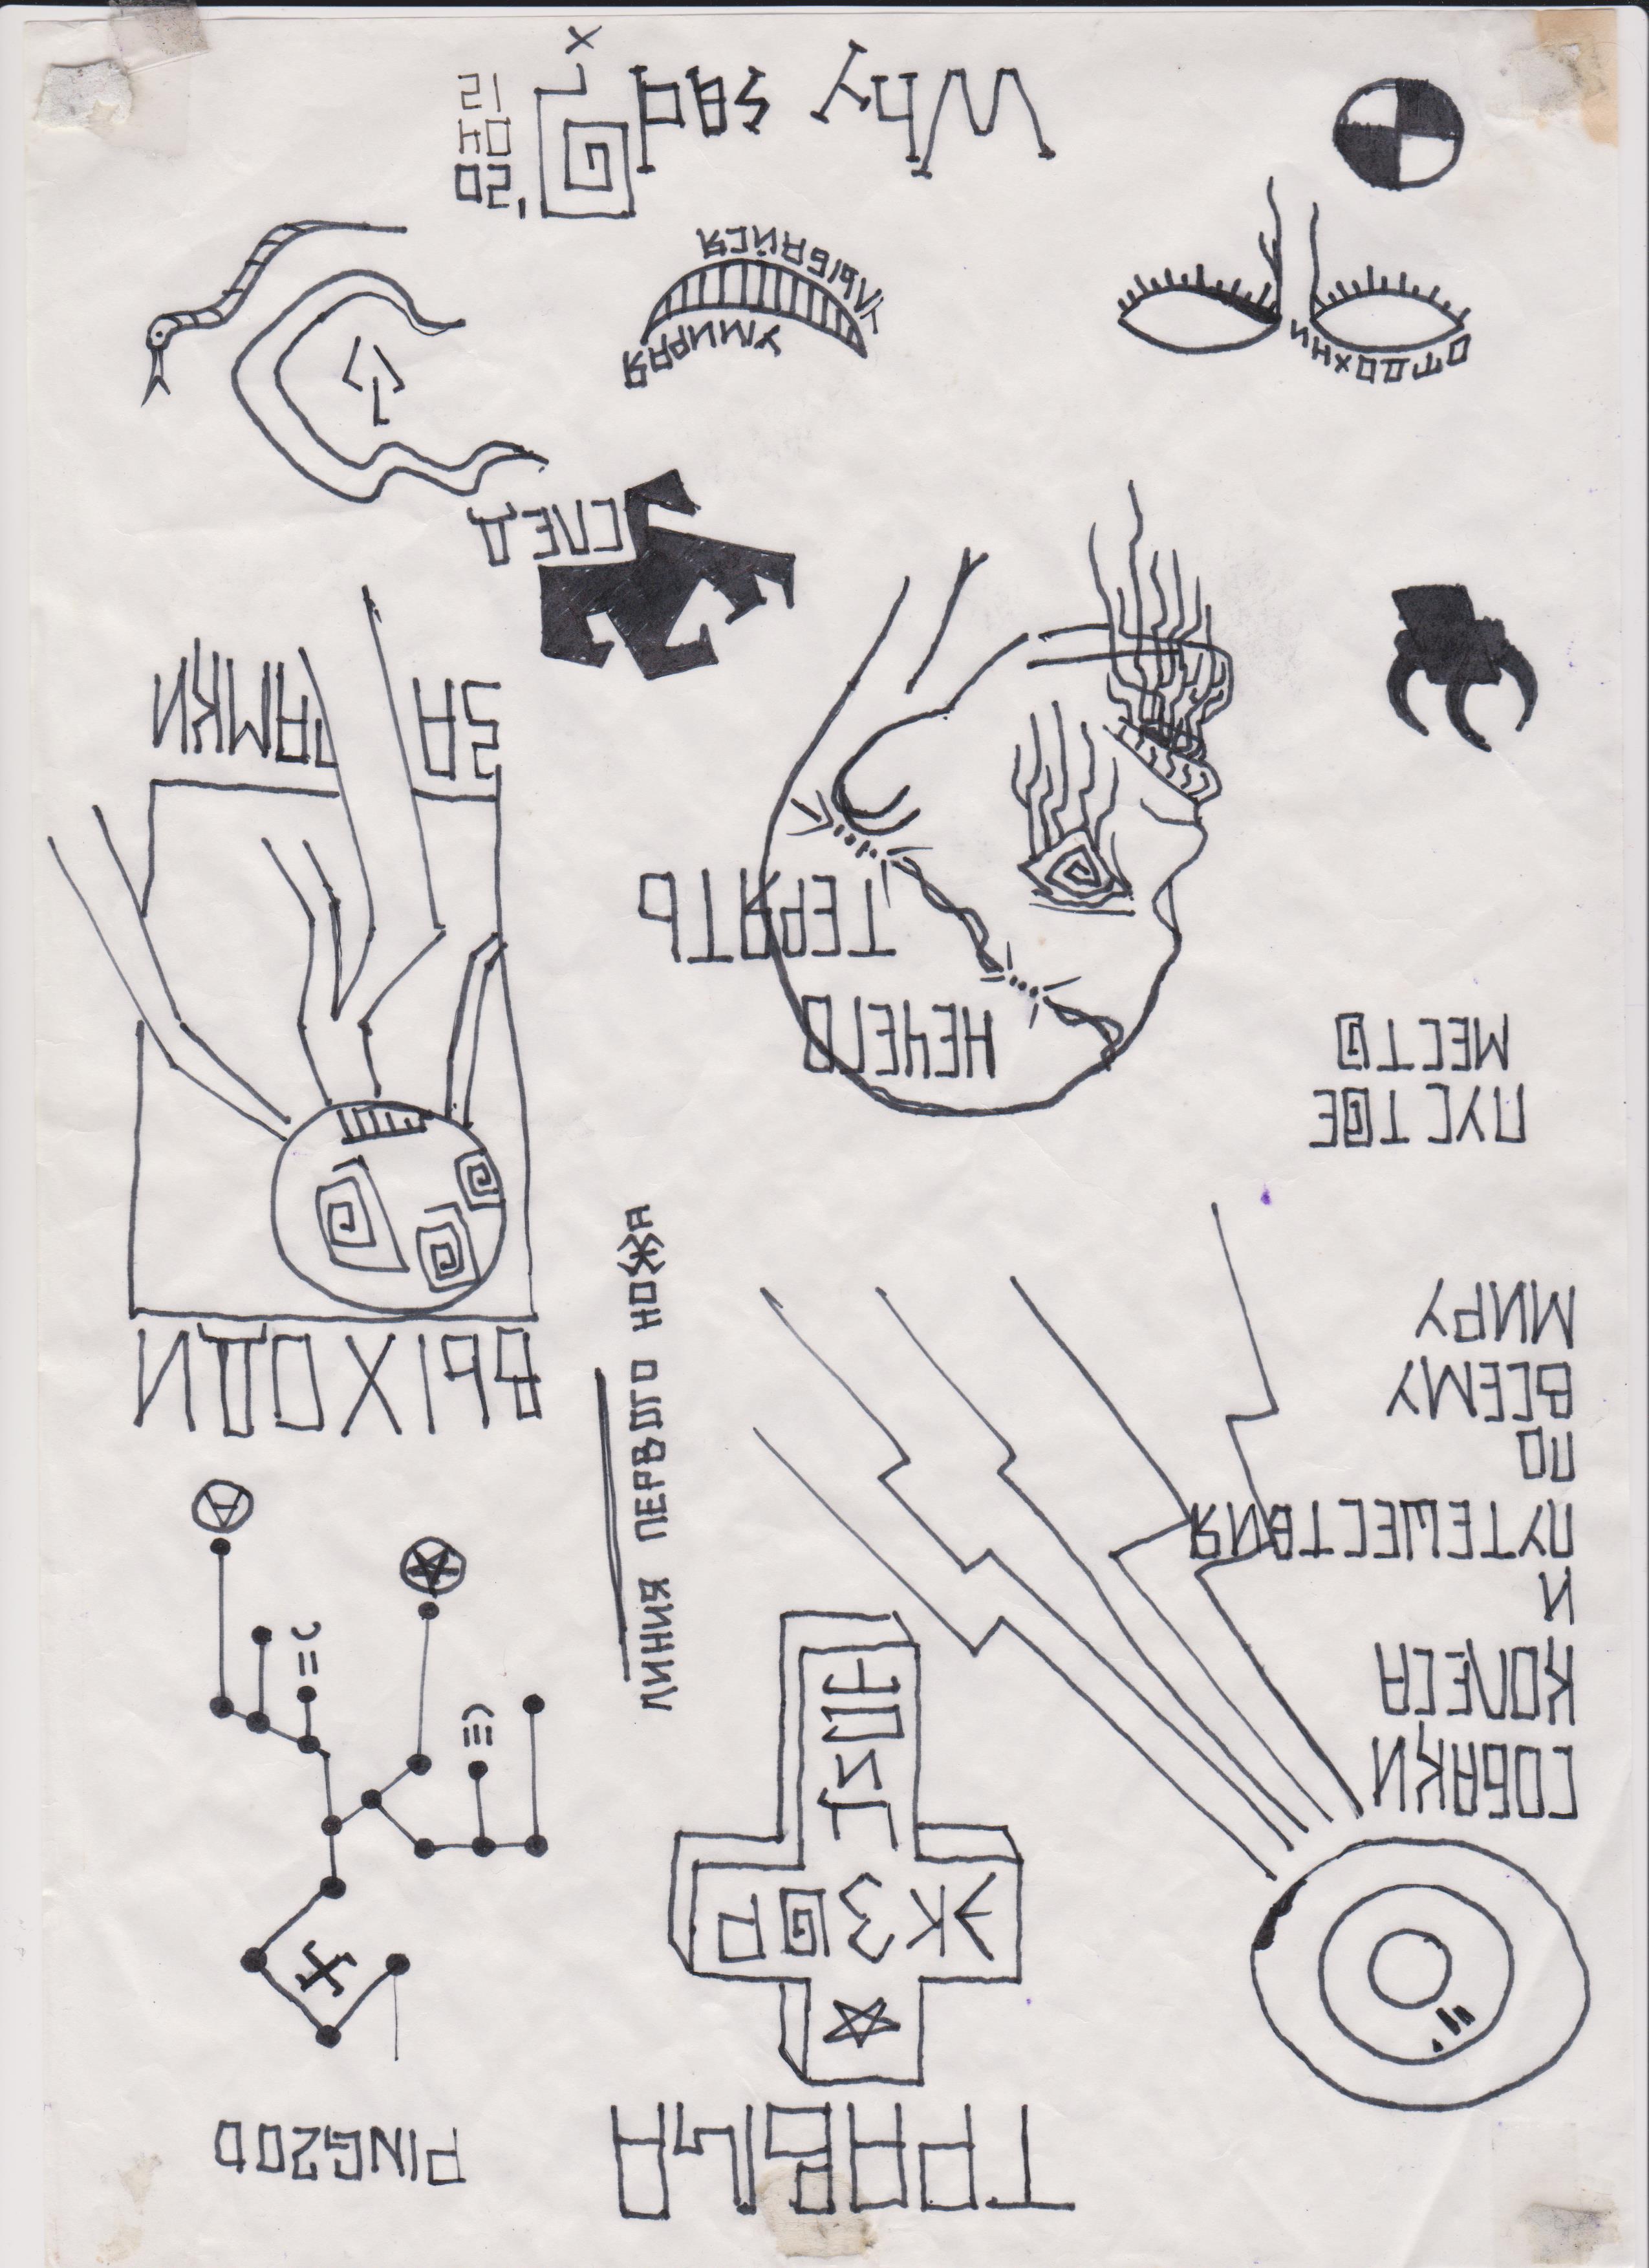 PINGZOD
СОБАКИ
КОЛЕСА
И
ПУТЕШЕСТВИЯ
ПО
ВСЕМУ
МИРУ
ЛИНИЯ ПЕРВОГО НОЖА
ВЫХОДИ
ЗА РАМКИ
ПУСТОЕ
МЕСТО
НЕЧЕГО
ТЕРЯТЬ
СЛЕД
ОТДОХНИ
УМИРАЯ
УЛЫБАЙСЯ
Why sad
'20
04
12